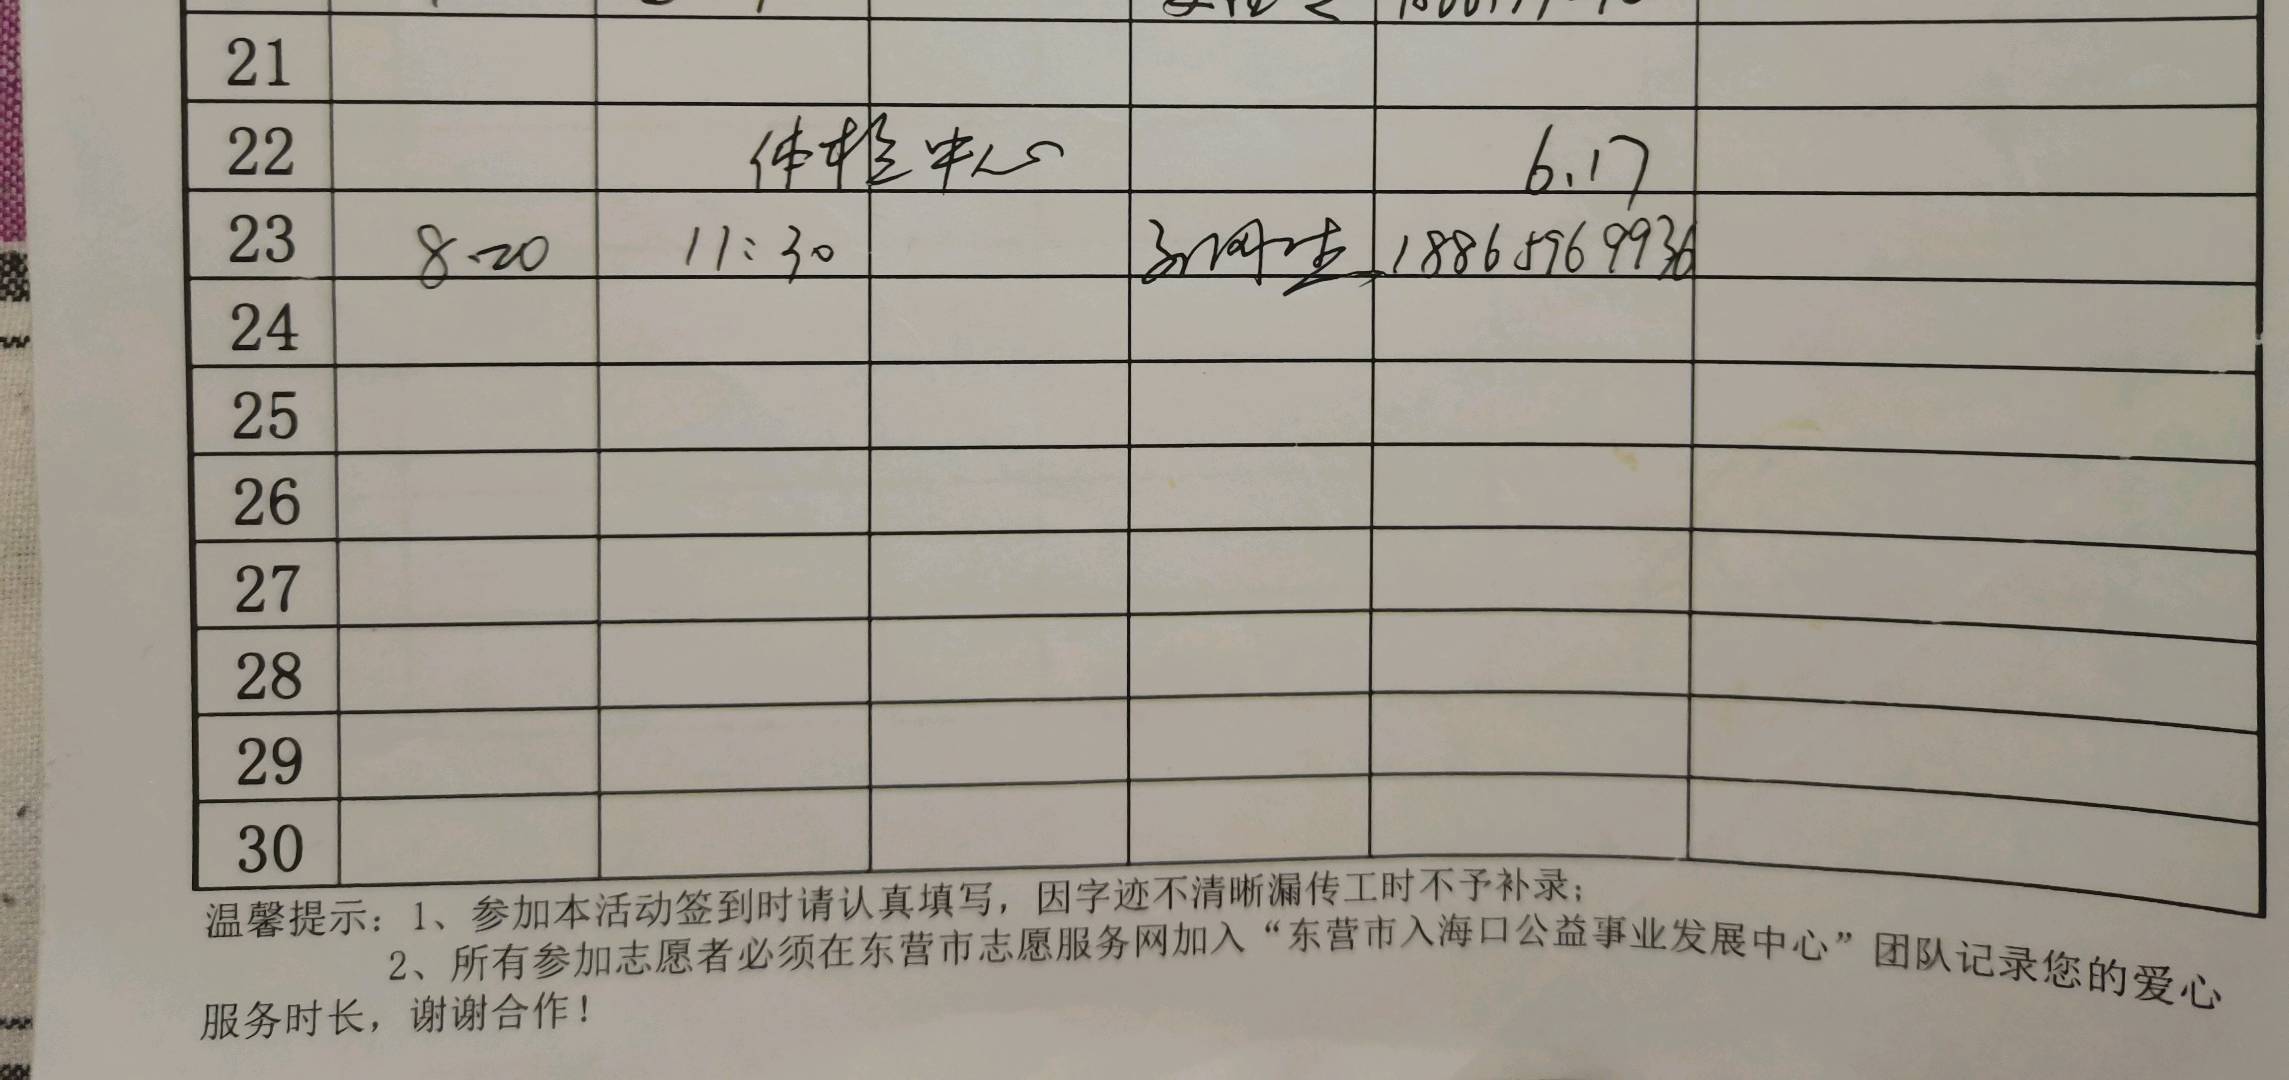 21
22 体检中心 6.17
23 8.20 11:30 18865969936
24
25
26
27
28
29
30
温馨提示：1、参加本活动签到时请认真填写，因字迹不清晰漏传工时不予补录；
2、所有参加志愿者必须在东营市志愿服务网加入“东营市入海口公益事业发展中心”团队记录您的爱心
服务时长，谢谢合作！